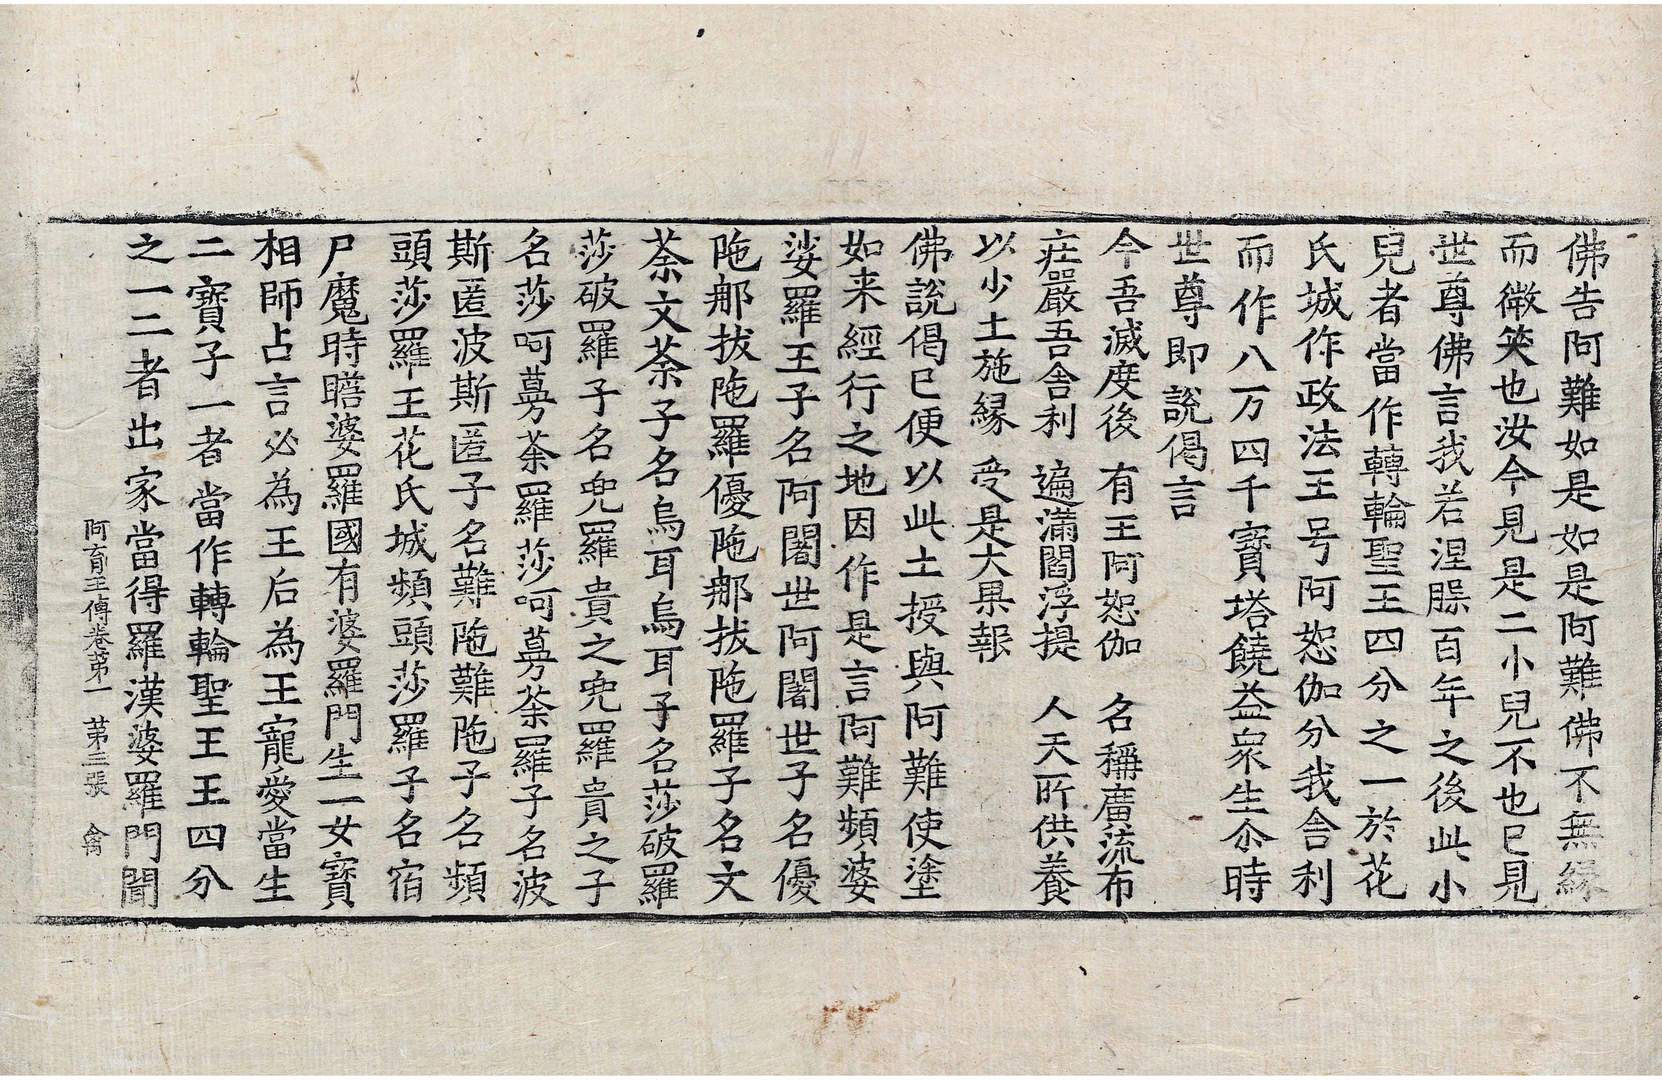 佛告阿難如是如是阿難佛不無緣
而微笑也汝今見是二小兒不也已見
世尊佛言我若涅槃百年之後此小
兒者當作轉輪聖王四分之一於花
氏城作政法王号阿恕伽分我舍利
而作八万四千寶塔饒益衆生尒時
世尊即說偈言
今吾滅度後 有王阿恕伽 名稱廣流布
庄嚴吾舍利 遍滿閻浮提 人天所供養
以少土施緣 受是大果報
佛說偈已便以此土授與阿難使塗
如来經行之地因作是言阿難頻婆
娑羅王子名阿闍世阿闍世子名優
陁郍拔陁羅優陁郍拔陁羅子名文
荼文荼子名烏耳烏耳子名莎破羅
莎破羅子名兜羅貴之兜羅貴之子
名莎呵蒡荼羅莎呵蒡荼羅子名波
斯匿波斯匿子名難陁難陁子名頻
頭莎羅王花氏城頻頭莎羅子名宿
尸魔時瞻婆羅國有婆羅門生一女寶
相師占言必為王后為王寵愛當生
二寶子一者當作轉輪聖王王四分
之一二者出家當得羅漢婆羅門聞
阿育王傳卷第一 第三張 禽